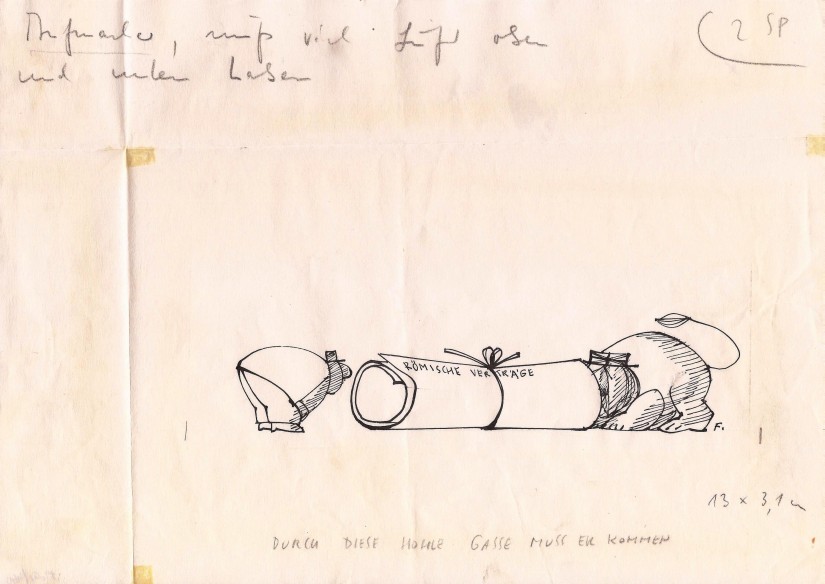 muß viel Luft oben
2 SP
und unten haben
RÖMISCHE VERTRÄGE
F.
13 x 3,1
DURCH DIESE HOHLE GASSE MUSS ER KOMMEN